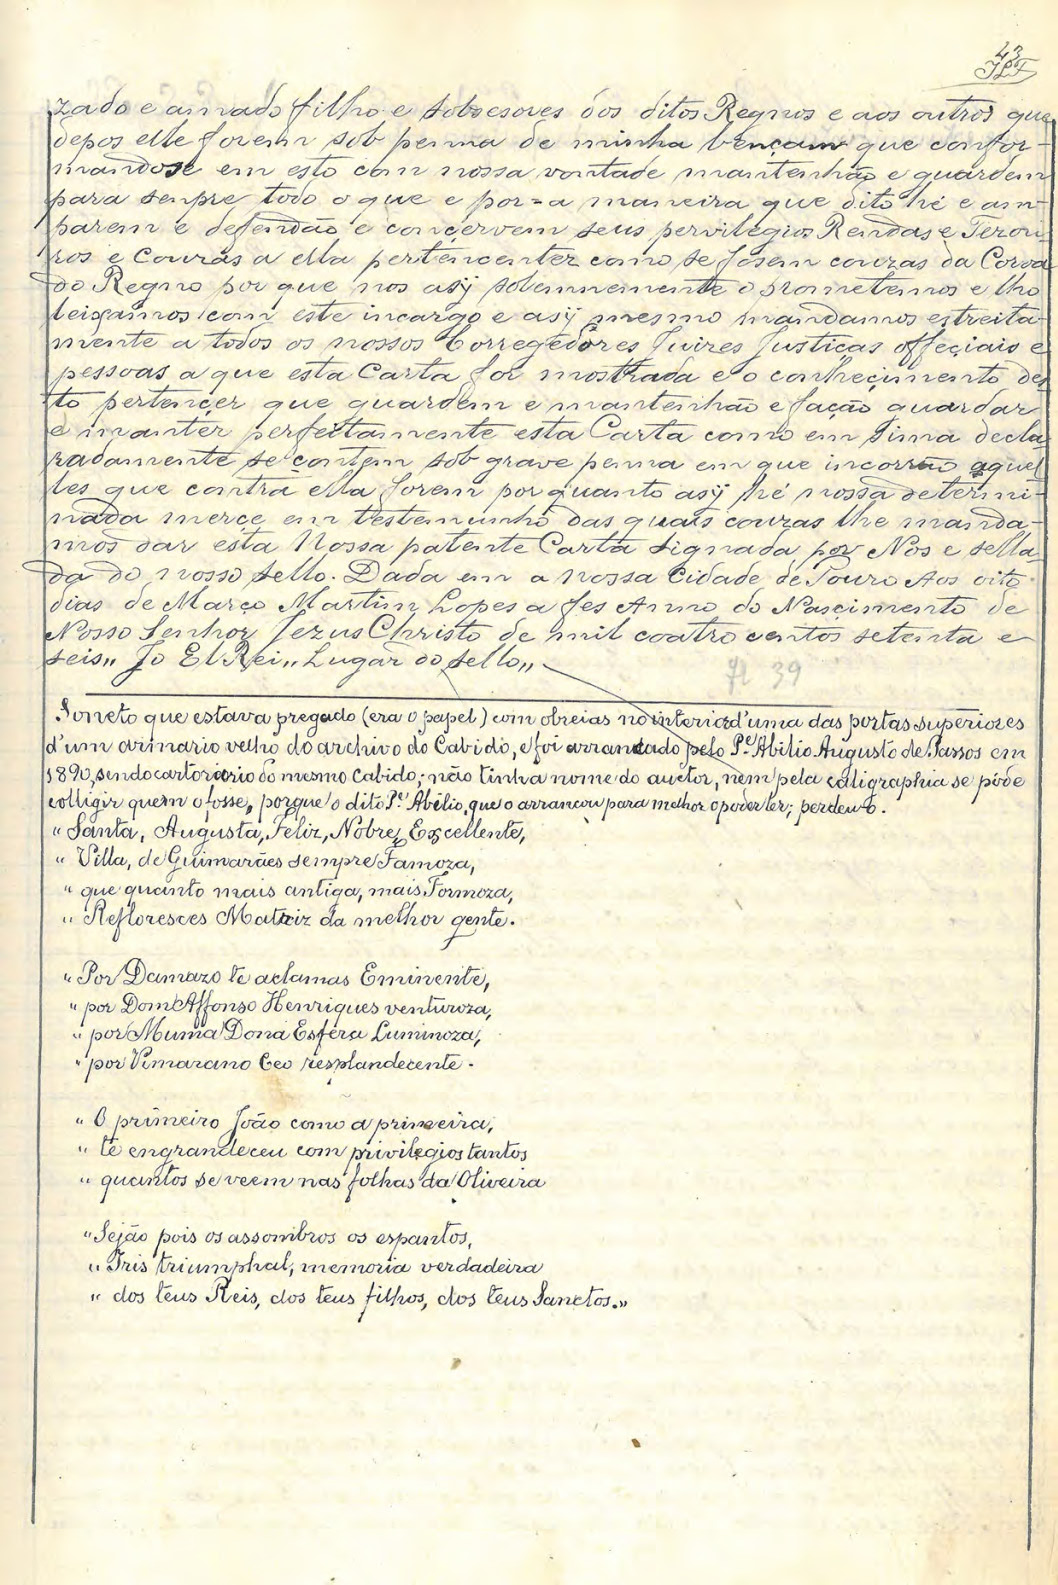 43
zado e amado filho e sobsesores dos ditos Regnos e aos outros que
depos elle forem sob penna de minha bençam que confor-
mandose em esto com nossa vontade mantenhão e guardem
para senpre todo o que e por a maneira que dito hé e am-
parem e defendão e conçervem seus pervilegios Rendas e Terori-
ros e Couzas a ella pertencentez como se fosem couzas da Coroa
do Regno por que nos asÿ solemnemente o prometemos e lho
leixamos com este incargo e asÿ mesmo mandamos estreita-
mente a todos os nossos Corregedores Juizes Justiças offeçiais e
pessoas a que esta Carta for mostrada e o conheçimento des-
to pertençer que guardem e mantenhão e façao guardar
e manter perfeitamente esta Carta como em sima decla-
radamente se contem sob grave penna em que incorrão aquel-
les que contra ella forem por quanto asÿ hé nossa determi-
nada merçe em testemunho das quais couzas lhe manda-
mos dar esta Nossa patente Carta signada por Nos e sella-
da do nosso sello. Dada em a nossa Cidade de Touro Aos oito
dias de Março Martim Lopes a fes Anno do Nasçimento de
Nosso Senhor Jezus Christo de mil coatro centos setenta e
seis„ Jo El Rei„ Lugar do sello„
fl 39
Soneto que estava pregado (era o papel) com obreias no interior d'uma das portas superiores
d'um armario velho do archivo do Cabido, e foi arrancado pelo P.e Abilio Augusto de Passos em
1890, sendo cartorario do mesmo Cabido; não tinha nome do auctor, nem pela caligraphia se pôde
colligir quem o fosse, porque o dito P.e Abilio, que o arrancou para melhor o poder ler, perdeu-o.
"Santa, Augusta, Feliz, Nobre, Excellente,
" Villa, de Guimarães sempre Famoza,
" que quanto mais antiga, mais Formoza,
" Refloresces Matriz da melhor gente.
"Por Damazo te aclamas Eminente,
" por Dom Affonso Henriques venturoza,
" por Muma Dona Esféra Luminoza,
" por Vimarano Ceo resplandecente.
" O primeiro João como a primeira,
" te engrandeceu com privilegios tantos
" quantos se veem nas folhas da Oliveira
"Sejão pois os assombros os espantos,
" Iris triumphal, memoria verdadeira
" dos teus Reis, dos teus filhos, dos teus Sanctos.»